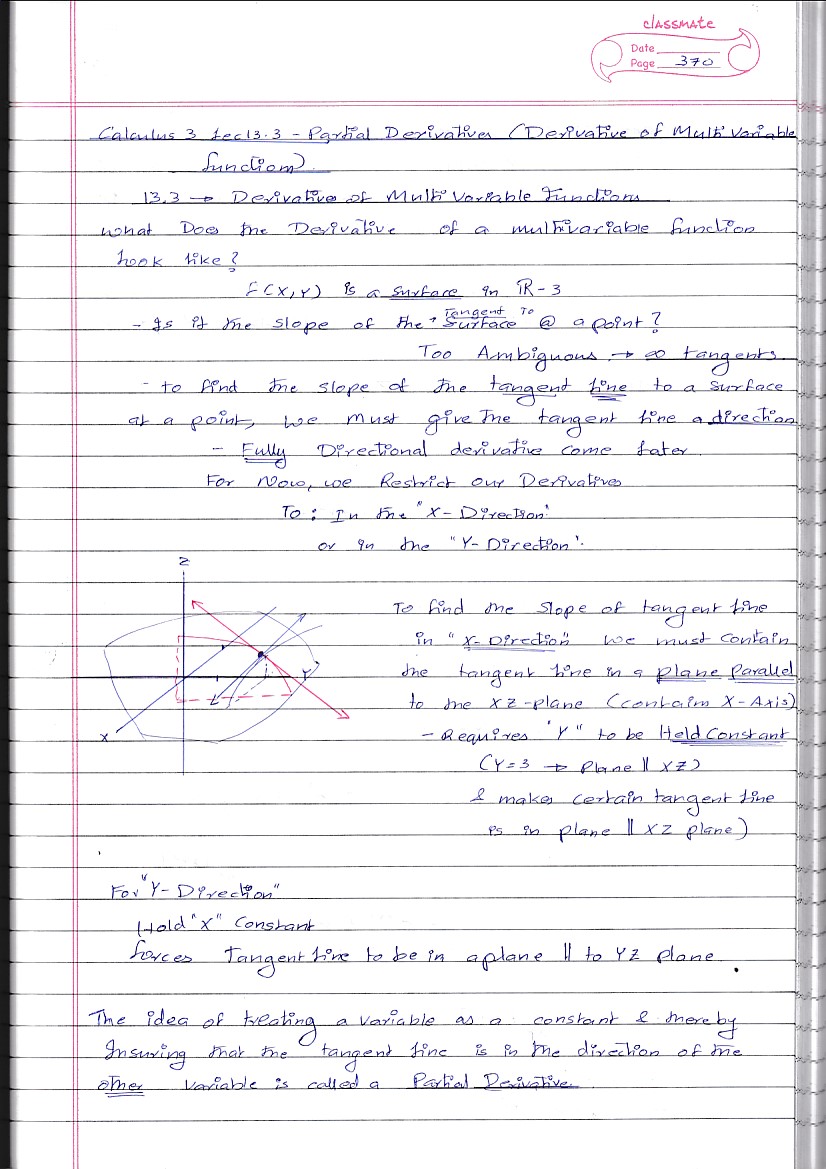 classmate
Date
Page 370
Calculus 3 Lec 13.3 - Partial Derivatives (Derivative of Multi Variable
functions)
13.3 → Derivative of Multi Variable Functions
What Does the Derivative of a multivariable function
Look like?
F(X,Y) is a surface in R-3
- Is it the slope of the Tangent To Surface @ a point?
Too Ambiguous → ∞ tangents
- to find the slope of the tangent line to a surface
at a point, we must give the tangent line a direction
- Fully Directional derivative come later
For Now, we Restrict our Derivatives
To: In the "X-Direction"
or in the "Y-Direction".
Z
To find the slope of tangent line
in "X-Direction" we must contain
the tangent line in a plane Parallel
Y
to the XZ-plane (contain X-Axis)
X
- Requires "Y" to be Held Constant
(Y=3 → Plane || XZ)
& makes certain tangent line
is in plane || XZ plane)
For "Y-Direction"
Hold "X" Constant
forces Tangent line to be in a plane || to YZ plane.
The idea of treating a variable as a constant & thereby
Insuring that the tangent line is in the direction of the
other variable is called a Partial Derivative.